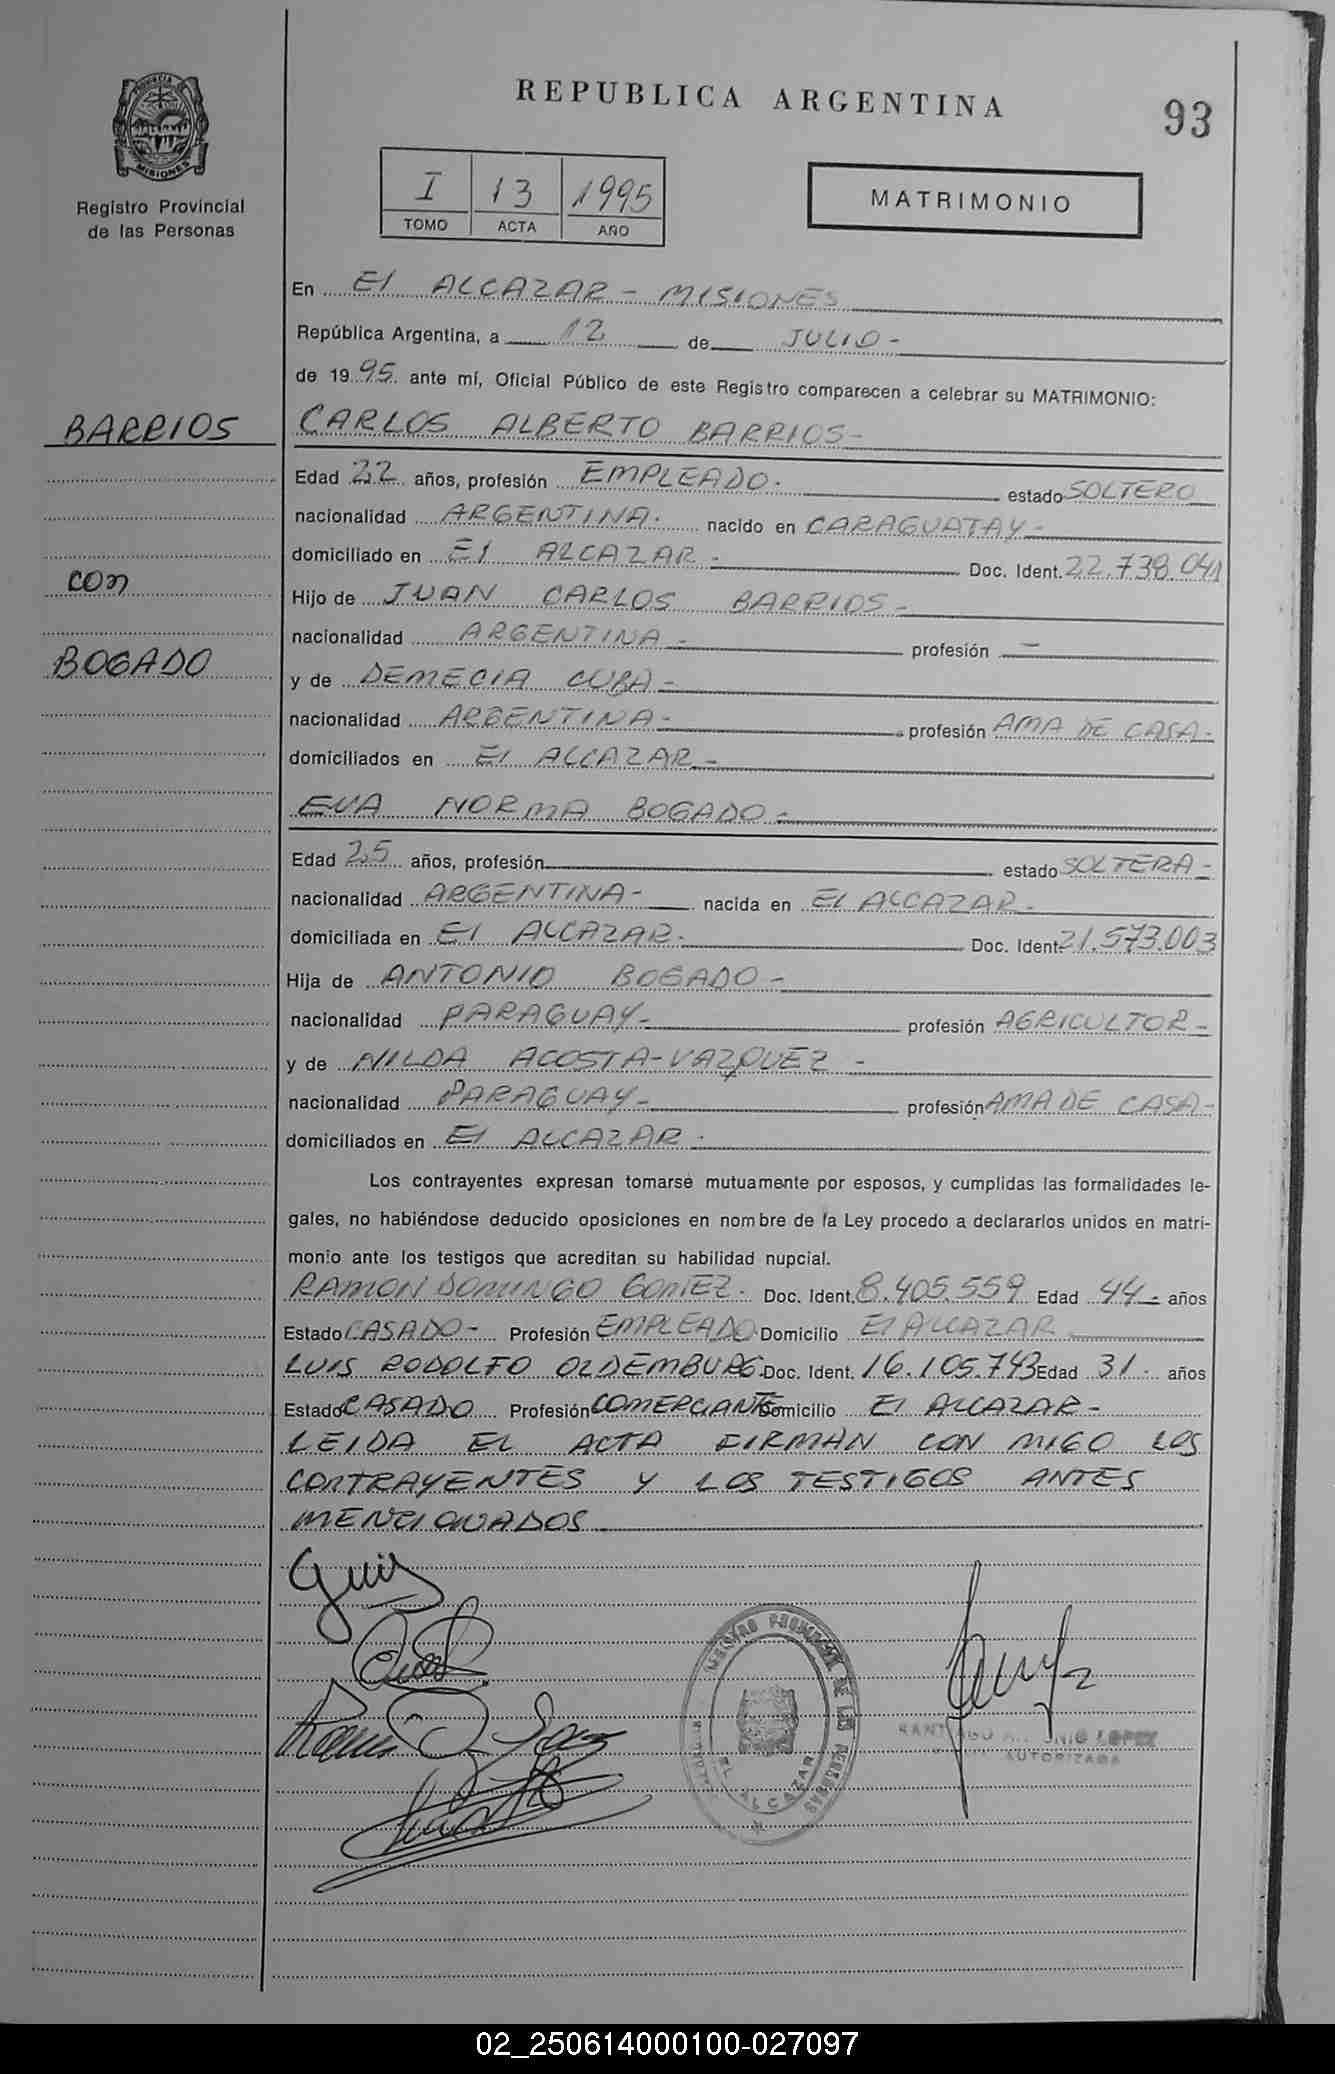 REPUBLICA ARGENTINA
93
PROVINCIA DE MISIONES
Registro Provincial
de las Personas
I 13 1995
TOMO ACTA AÑO
MATRIMONIO
En El ALCAZAR - MISIONES
República Argentina, a 12 de JULIO -
de 1995 ante mí, Oficial Público de este Registro comparecen a celebrar su MATRIMONIO:
BARRIOS
CARLOS ALBERTO BARRIOS -
Edad 22 años, profesión EMPLEADO. estado SOLTERO
nacionalidad ARGENTINA. nacido en CARAGUATAY -
domiciliado en El ALCAZAR - Doc. Ident. 22.738.041
con
Hijo de JUAN CARLOS BARRIOS -
nacionalidad ARGENTINA - profesión —
BOGADO
y de DEMECIA CUBA -
nacionalidad ARGENTINA - profesión AMA DE CASA -
domiciliados en El ALCAZAR -
EVA NORMA BOGADO -
Edad 25 años, profesión estado SOLTERA -
nacionalidad ARGENTINA - nacida en EL ALCAZAR -
domiciliada en El ALCAZAR. Doc. Ident. 21.573.003
Hija de ANTONIO BOGADO -
nacionalidad PARAGUAY - profesión AGRICULTOR -
y de NILDA ACOSTA-VAZQUEZ -
nacionalidad PARAGUAY - profesión AMA DE CASA -
domiciliados en El ALCAZAR -
Los contrayentes expresan tomarse mutuamente por esposos, y cumplidas las formalidades le-
gales, no habiéndose deducido oposiciones en nombre de la Ley procedo a declararlos unidos en matri-
monio ante los testigos que acreditan su habilidad nupcial.
RAMON DOMINGO GOMEZ. Doc. Ident. 8.405.559 Edad 44 - años
Estado CASADO - Profesión EMPLEADO Domicilio El ALCAZAR
LUIS RODOLFO OLDEMBURG. Doc. Ident. 16.105.743 Edad 31 - años
Estado CASADO Profesión COMERCIANTE Domicilio El ALCAZAR -
LEIDA EL ACTA FIRMAN CON MIGO LOS
CONTRAYENTES Y LOS TESTIGOS ANTES
MENCIONADOS
REGISTRO PROVINCIAL DE LAS PERSONAS
EL ALCAZAR
LOPEZ
AUTORIZADA
02_250614000100-027097